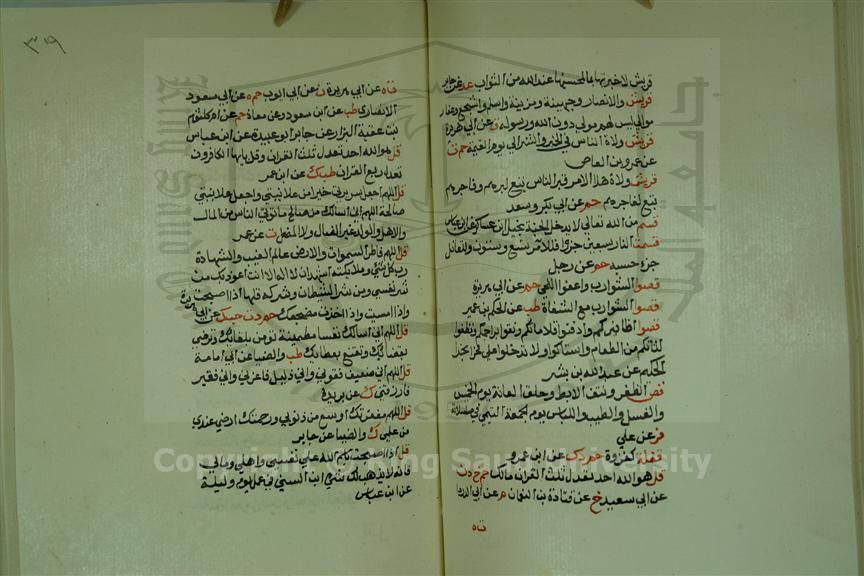 قريش لاخبرتها بما لمحسنها عند الله من الثواب عد عن جابر
قريش والانصار وجهينة ومزينة واسلم واشجع وغفار
موالي ليس لهم مولى دون الله ورسوله ق عن ابي هريرة
قريش ولاة الناس في الخير والشر الى يوم القيمة حم ت
عن عمرو بن العاص
قريش ولاة هذا الامر فبر الناس تبع لبرهم وفاجرهم
تبع لفاجرهم حم عن ابي بكر وسعد
قسم من الله تعالى لا يدخل الجنة بخيل ابن عساكر عن ابن عباس
قسمت النار سبعين جزوا فللآمر تسع وستون وللقاتل
جزء حسبه حم عن رجل
قصوا الشوارب واعفوا اللحى حم عن ابي هريرة
قصوا الشوارب مع الشفاه طب عن الحكم بن عمير
قصوا اظافيركم وادفنوا قلاماتكم ونقوا براجمكم ونظفوا
لثاتكم من الطعام واستاكوا ولا تدخلوا علي قحرا بخرا
الحكيم عن عبد الله بن بشر
قص الظفر ونتف الابط وحلق العانة يوم الخميس
والغسل والطيب واللباس يوم الجمعة التيمي في مسلسلاته
فر عن علي
قفلة كغزوة حم د ك عن ابن عمرو
قل هو الله احد تعدل ثلث القران مالك حم خ د ن
عن ابي سعيد خ عن قتادة بن النعمان م عن ابي الدردا
ت ه
٣١٩
ت ه عن ابي هريرة ن عن ابي ايوب حم ه عن ابي مسعود
الانصاري طب عن ابن مسعود وعن معاذ حم عن ام كلثوم
بنت عقبة البزار عن جابر ابو عبيدة عن ابن عباس
قل هو الله احد تعدل ثلث القران وقل يايها الكافرون
تعدل ربع القران طب ك عن ابن عمر
قل اللهم اجعل سريرتي خيرا من علانيتي واجعل علانيتي
صالحة اللهم اني اسالك من صالح ما توتي الناس من المال
والاهل والولد غير الضال ولا المضل ت عن عمر
قل اللهم فاطر السموات والارض عالم الغيب والشهادة
رب كل شيئ ومليكه اشهد ان لا اله الا انت اعوذ بك من
شر نفسي ومن شر الشيطان وشركه قلها اذا اصبحت
واذا امسيت واذا اخذت مضجعك حم د ت حب ك عن ابي هريرة
قل اللهم اني اسالك نفسا مطمينة تومن بلقائك وترضى
بقضائك وتقنع بعطائك طب والضيا عن ابي امامة
قل اللهم اني ضعيف فقوني واني ذليل فاعزني واني فقير
فارزقني ك عن بريدة
قل اللهم مغفرتك اوسع من ذنوبي ورحمتك ارجى عندي
من عملي ك والضيا عن جابر
قل اذا اصبحت باسم الله على نفسي واهلي ومالي
فانه لا يذهب لك شئ ابن السني في عمل يوم وليلة
عن ابن عباس
Copyright © King Saud University